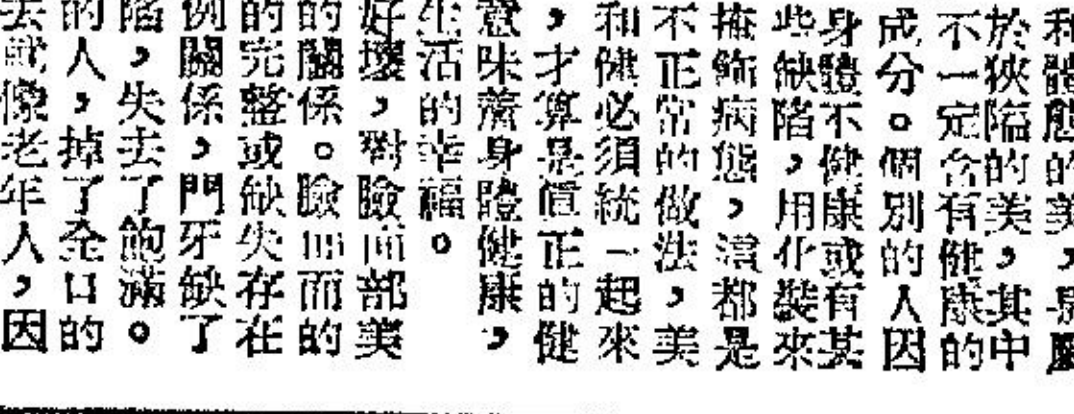 和體態的美，是屬
於狹隘的美，其中
不一定含有健康的
成分。個別的人因
身體不健康或有某
些缺陷，用化裝來
掩飾病態，這都是
不正常的做法，美
和健必須統一起來
，才算是真正的健
意味着身體健康，
生活的幸福。
好壞，對臉面部美
的關係。臉面的
的完整或缺失存在
例關係，門牙缺了
陷，失去了飽滿。
的人，掉了全口的
去就像老年人，因